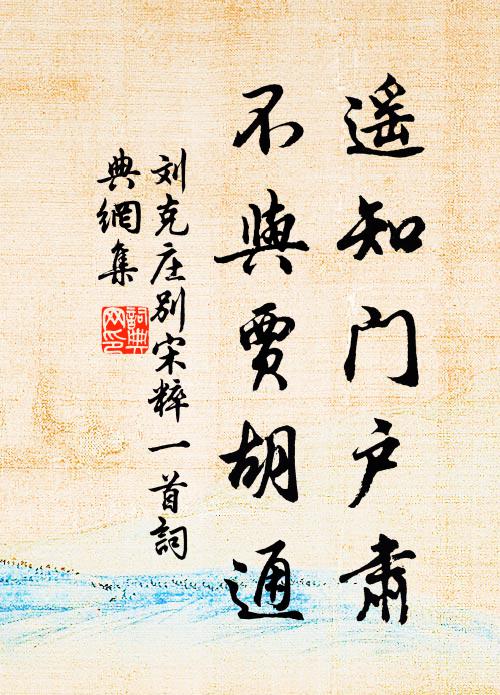 遥知门户肃
不與贾胡通
刘克庄别宋粹一首詞
典網集
詞典
网印